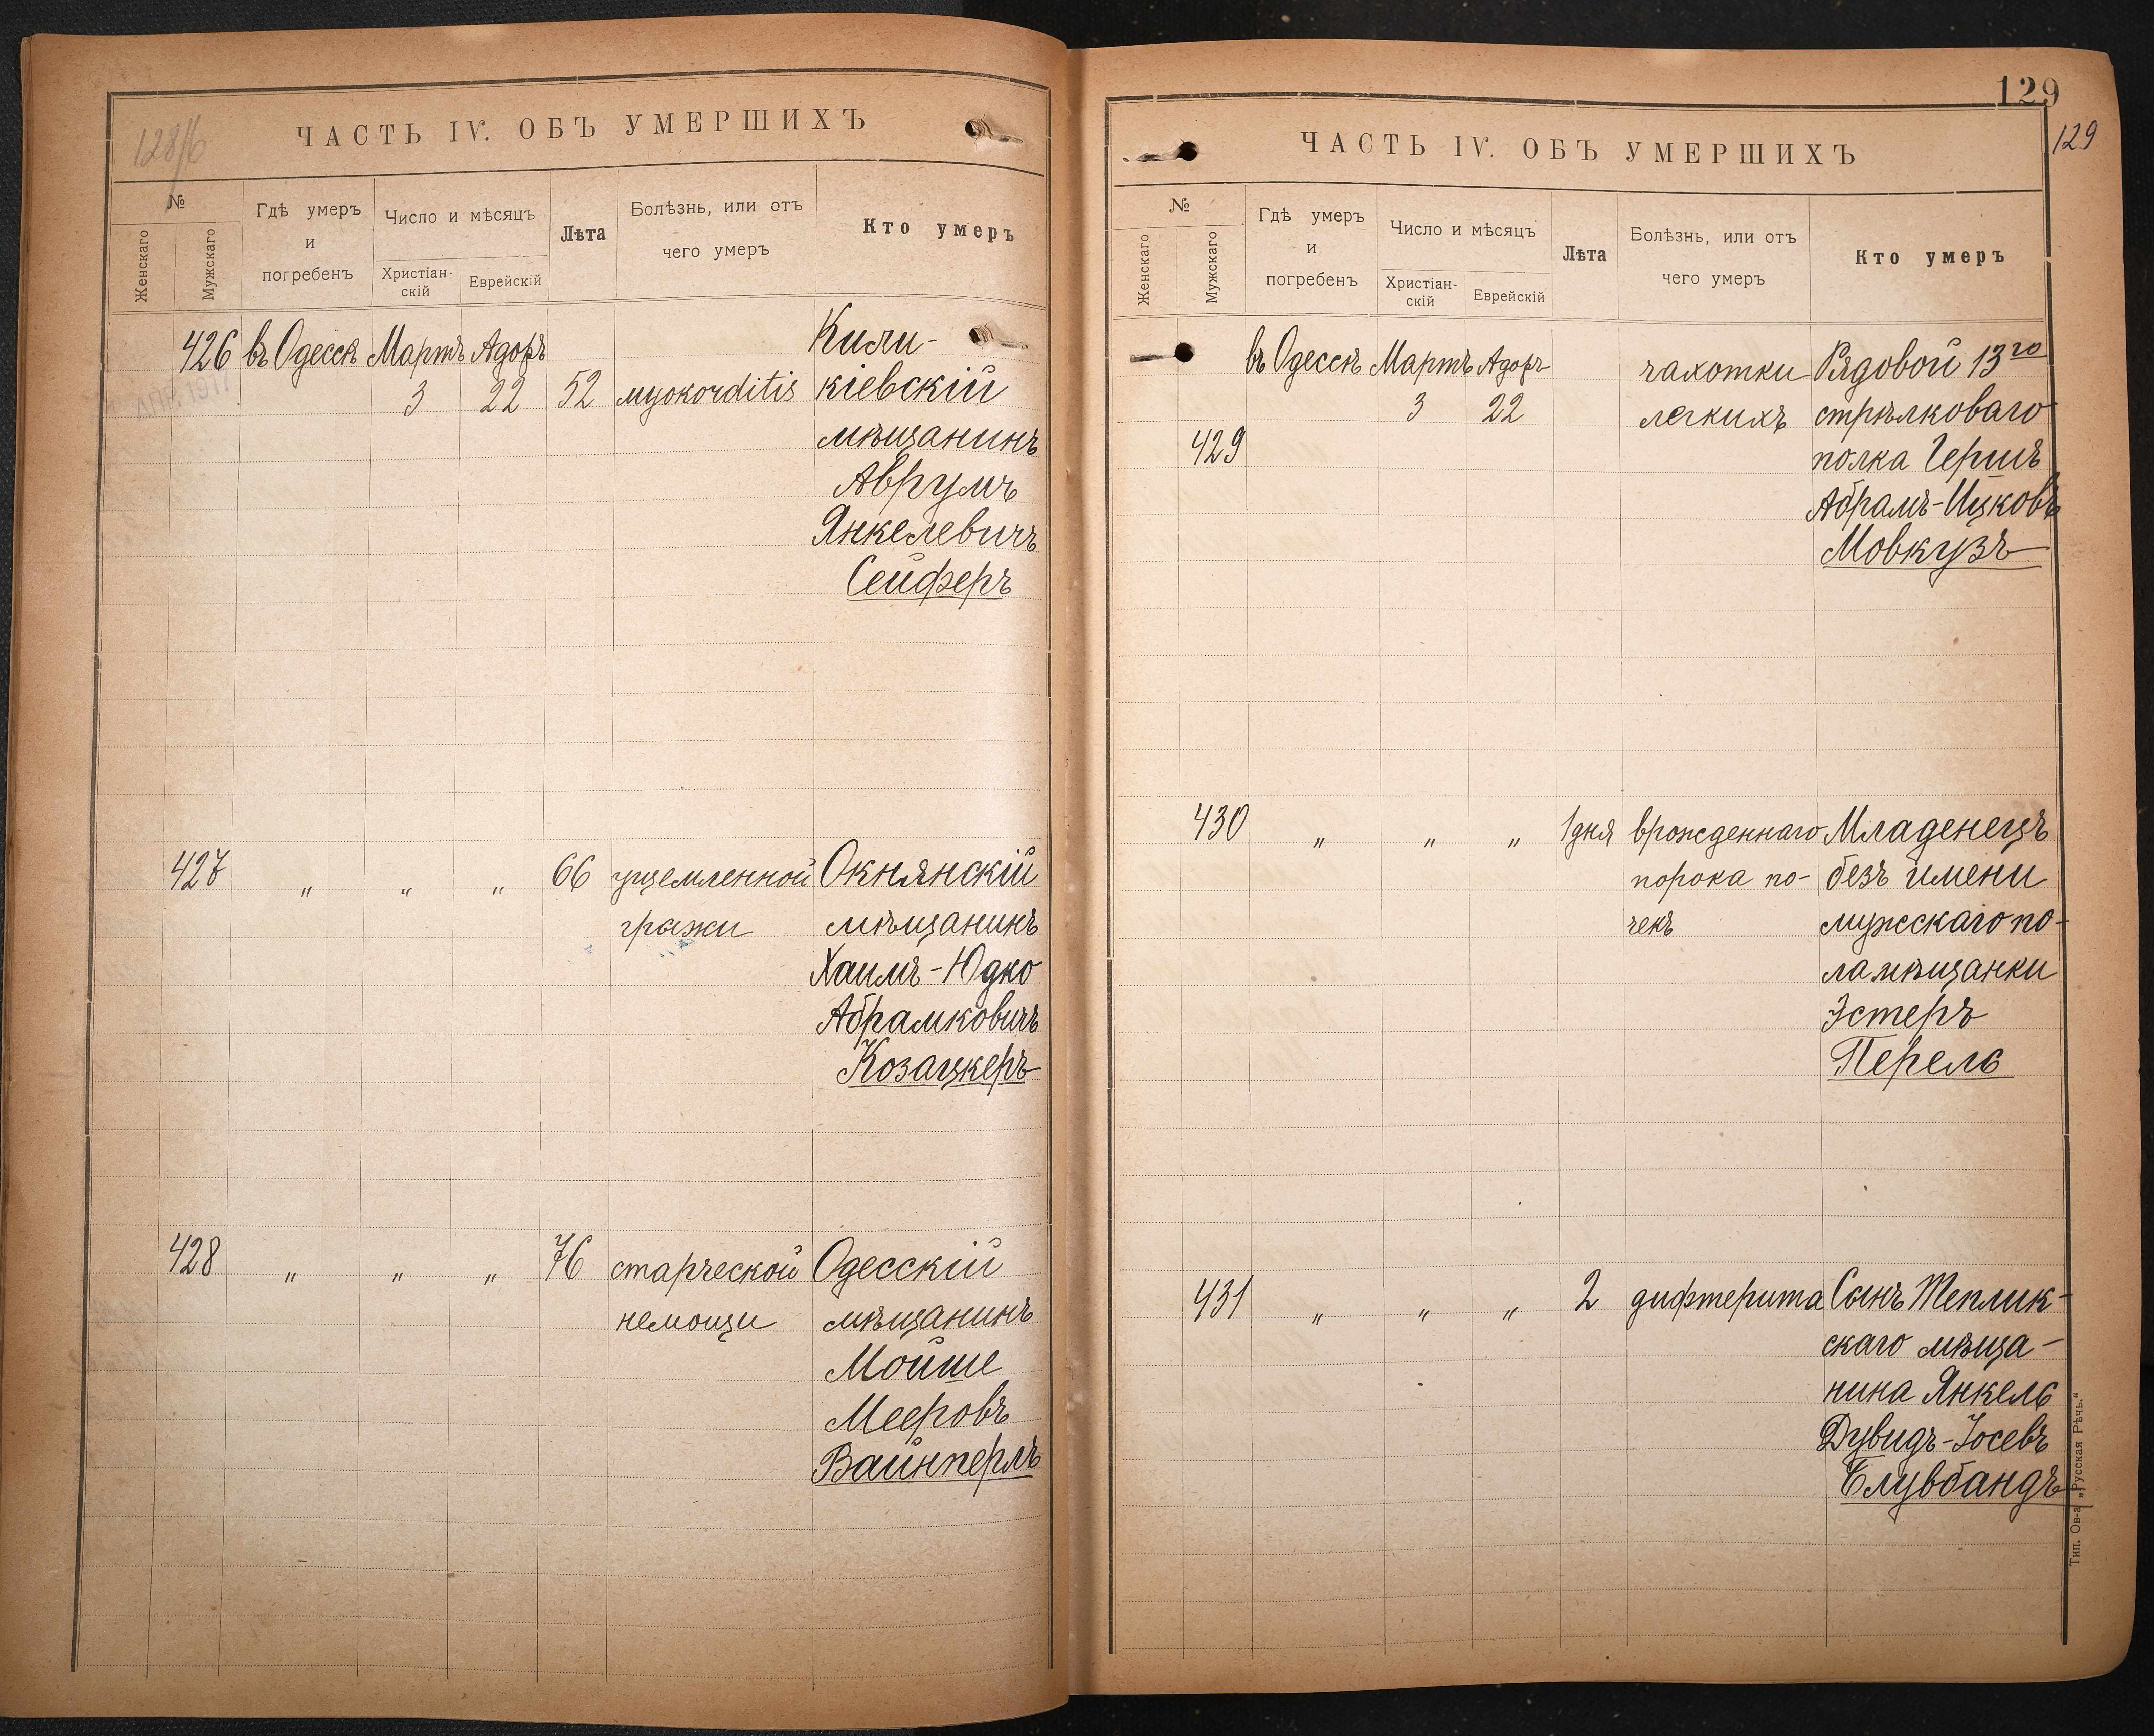 128/б
ЧАСТЬ IV. ОБЪ УМЕРШИХЪ
№
Женскаго
Мужскаго
Гдѣ умеръ
и
погребенъ
Число и мѣсяцъ
Христіан-
скій
Еврейскій
Лѣта
Болѣзнь, или отъ
чего умеръ
Кто умеръ
426 въ Одессѣ Мартъ Адоръ Кили-
3 22 52 myokorditis кіевскій
мѣщанинъ
Аврумъ
Янкелевичъ
Сейферъ
427 " " " 66 ущемленной Окнянскій
грыжи мѣщанинъ
Хаимъ-Юдко
Абрамковичъ
Козацкеръ
428 " " " 76 старческой Одесскій
немощи мѣщанинъ
Мойше
Мееровъ
Вайнперлъ
129
129
ЧАСТЬ IV. ОБЪ УМЕРШИХЪ
№
Женскаго
Мужскаго
Гдѣ умеръ
и
погребенъ
Число и мѣсяцъ
Христіан-
скій
Еврейскій
Лѣта
Болѣзнь, или отъ
чего умеръ
Кто умеръ
въ Одессѣ Мартъ Адоръ чахотки Рядовой 13го
3 22 легкихъ стрѣлковаго
429 полка Гершъ
Абрамъ-Ицковъ
Мовкузъ
430 " " " 1 дня врожденнаго Младенецъ
порока по- безъ имени
чекъ мужскаго по-
ла мѣщанки
Эстеръ
Перель
431 " " " 2 дифтерита Сынъ Теплик-
скаго мѣща-
нина Янкель
Дувидъ-Іосевъ
Блувбандъ
Тип. Ов-а „Русская Рѣчь.“